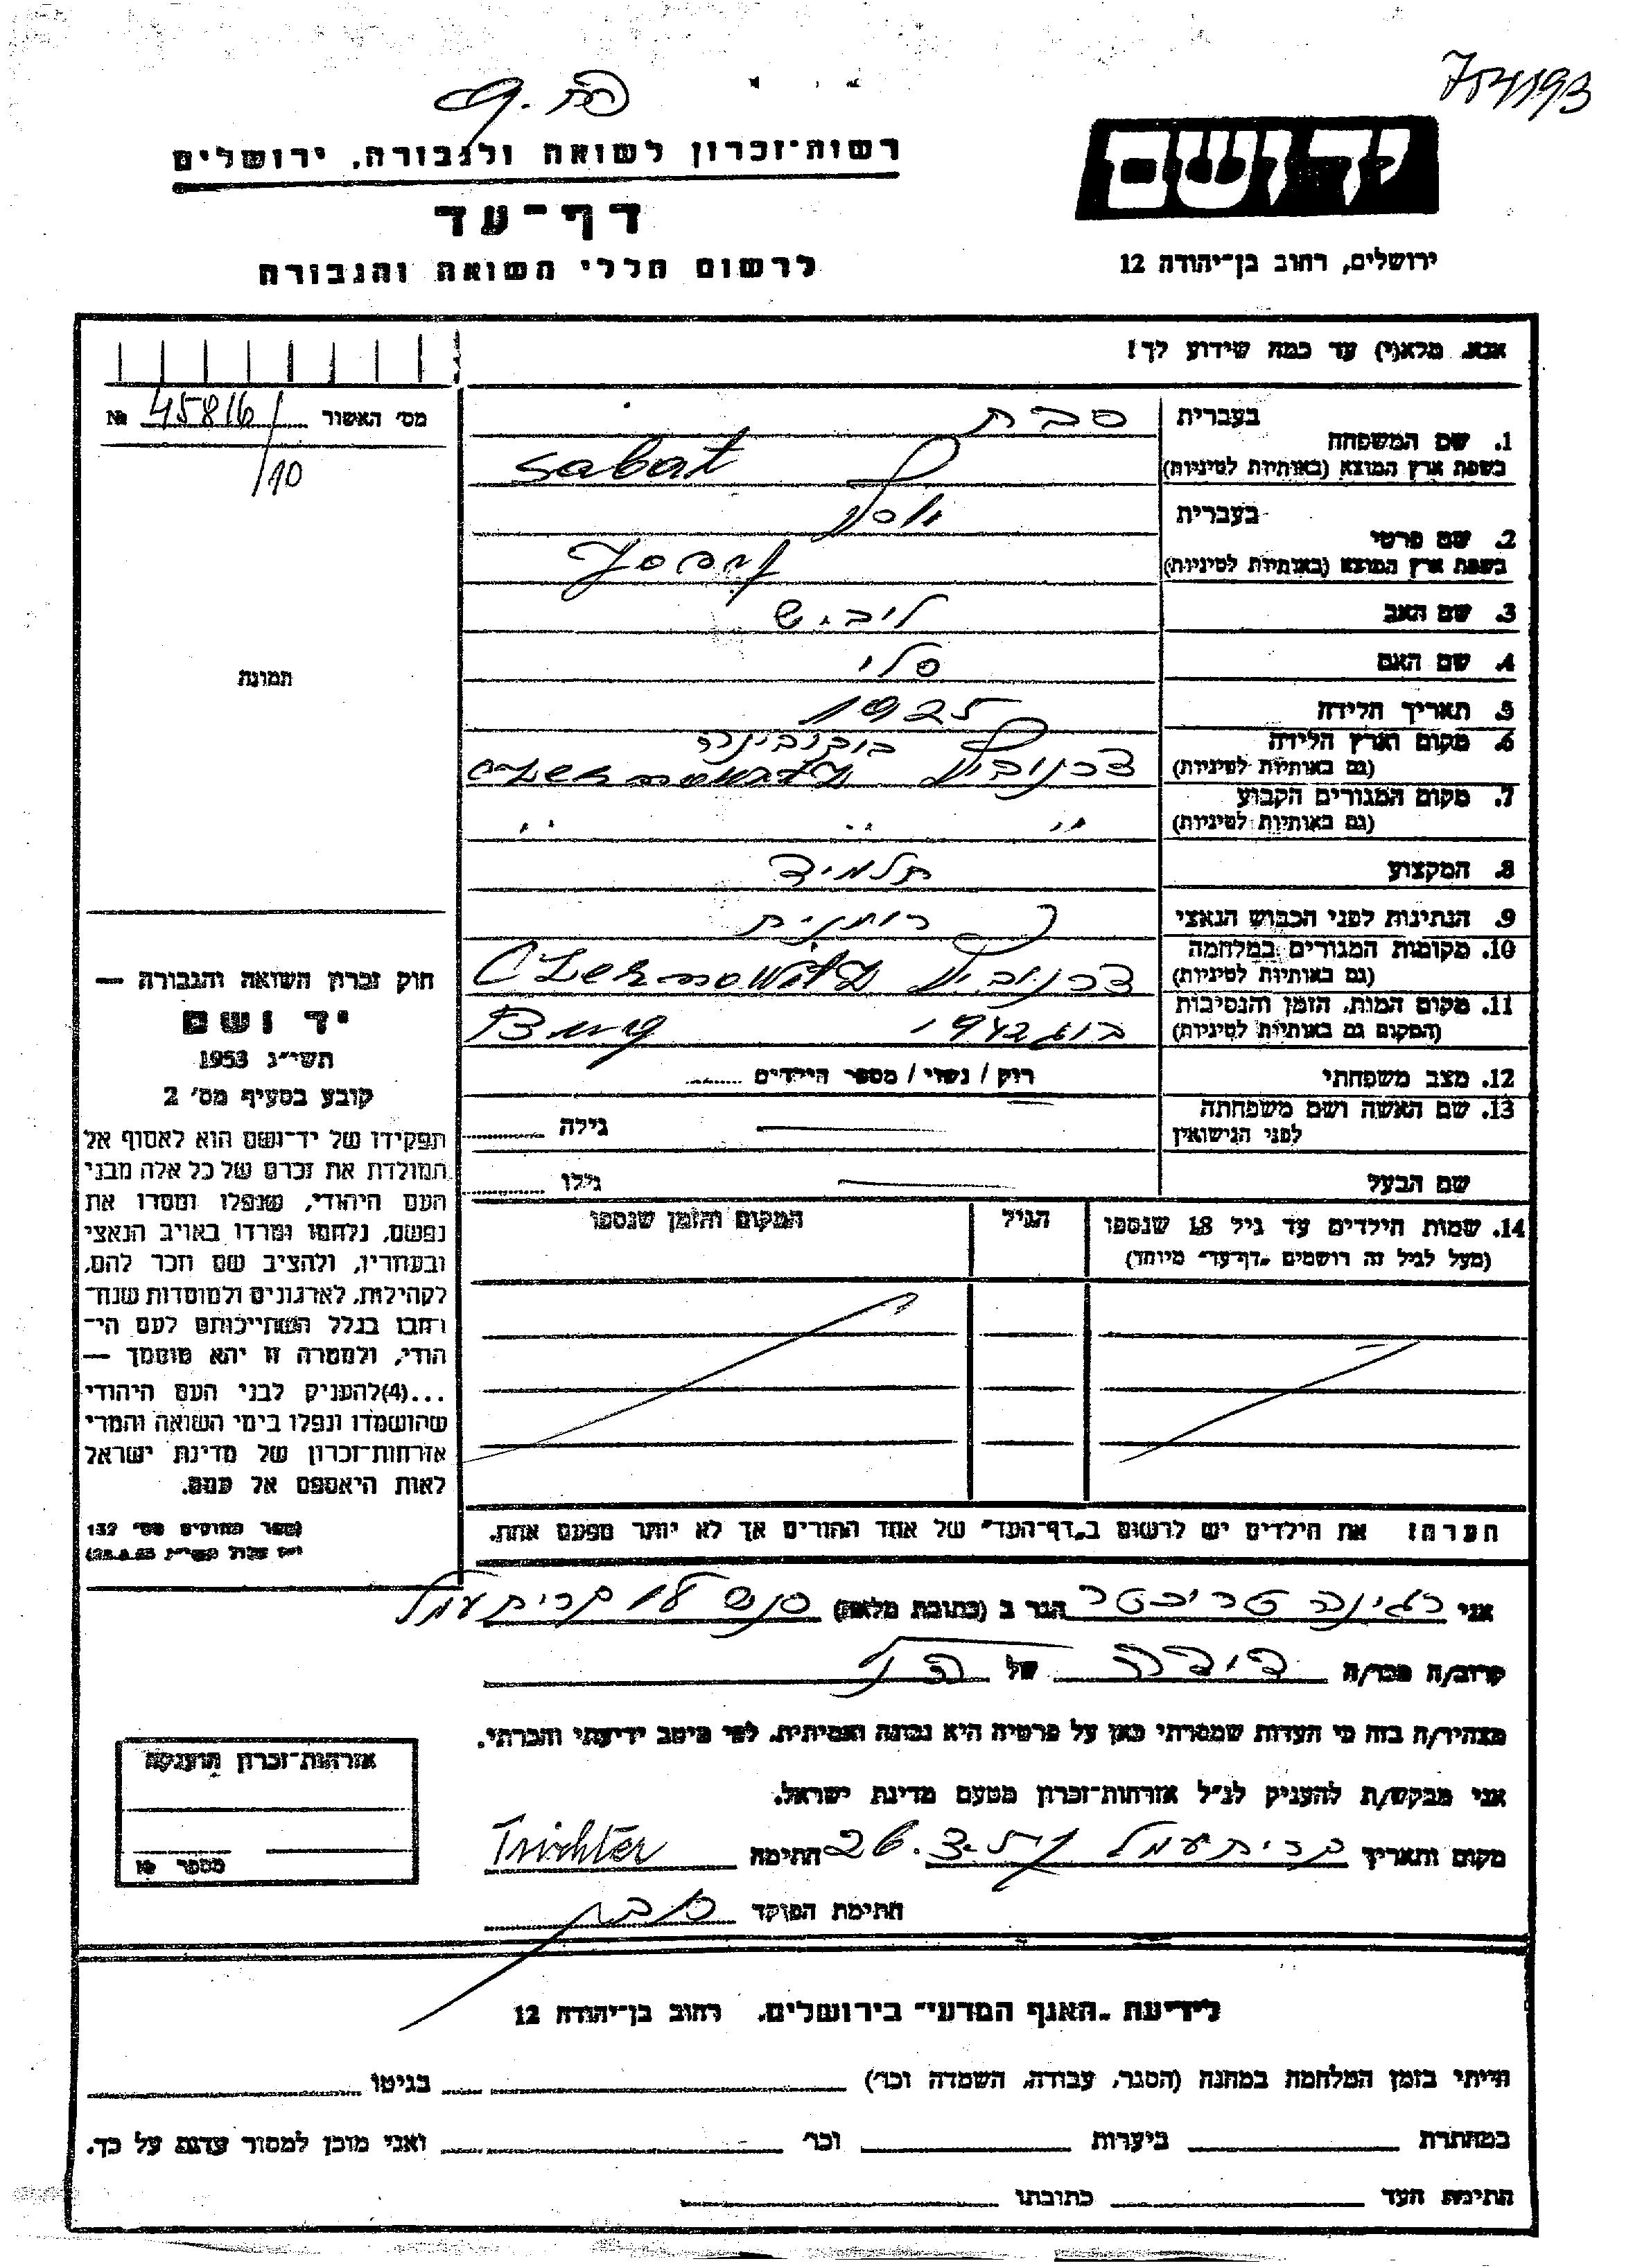 754193
רשות־זכרון לשואה ולגבורה, ירושלים
דף־עד
לרשום חללי השואה והגבורה
יד ושם
ירושלים, רחוב בן־יהודה 12
אנא, מלא(י) עד כמה שידוע לך!
מס׳ האשור 45816 №
/10
תמונה
1. שם המשפחה בעברית סבת
בשפת ארץ המוצא (באותיות לטיניות) Sabat
2. שם פרטי בעברית יוסף
בשפת ארץ המוצא (באותיות לטיניות) Josef
3. שם האב ליביש
4. שם האם סלי
5. תאריך הלידה 1925
6. מקום וארץ הלידה בוקובינה
(גם באותיות לטיניות) צרנוביץ Czernowitz
7. מקום המגורים הקבוע
(גם באותיות לטיניות) ״ ״ ״
8. המקצוע תלמיד
9. הנתינות לפני הכבוש הנאצי רומנית
10. מקומות המגורים במלחמה
(גם באותיות לטיניות) צרנוביץ Czernowitz
11. מקום המות, הזמן והנסיבות
(המקום גם באותיות לטיניות) בוג 1942 Bug
12. מצב משפחתי רווק / נשוי / מספר הילדים
13. שם האשה ושם משפחתה
לפני הנישואין גילה
שם הבעל גילו
14. שמות הילדים עד גיל 18 שנספו הגיל המקום והזמן שנספו
(מעל לגיל זה רושמים „דף־עד״ מיוחד)
הערה: את הילדים יש לרשום ב„דף־העד״ של אחד ההורים אך לא יותר מפעם אחת.
חוק זכרון השואה והגבורה —
יד ושם
תשי״ג 1953
קובע בסעיף מס׳ 2
תפקידו של יד־ושם הוא לאסוף אל
המולדת את זכרם של כל אלה מבני
העם היהודי, שנפלו ומסרו את
נפשם, נלחמו ומרדו באויב הנאצי
ובעוזריו, ולהציב שם וזכר להם,
לקהילות, לארגונים ולמוסדות שנח־
רבו בגלל השתייכותם לעם הי־
הודי, ולמטרה זו יהא מוסמך —
...(4)להעניק לבני העם היהודי
שהושמדו ונפלו בימי השואה והמרי
אזרחות־זכרון של מדינת ישראל
לאות היאספם אל עמם.
(ספר החוקים מס׳ 132
אני רגינה טריכטר הגר ב (כתובת מלאה) קרית עמל
קרוב/ה מכר/ה דודה של הנ״ל
מצהיר/ה בזה כי העדות שמסרתי כאן על פרטיה היא נכונה ואמיתית, לפי מיטב ידיעתי והכרתי.
אני מבקש/ת להעניק לנ״ל אזרחות־זכרון מטעם מדינת ישראל.
מקום ותאריך קרית עמל 26.3. חתימה Trichter
חתימת הפוקד סבת
אזרחות־זכרון הוענקה
מספר №
לידיעת „האגף המדעי״ בירושלים, רחוב בן־יהודה 12
הייתי בזמן המלחמה במחנה (הסגר, עבודה, השמדה וכו׳) בגיטו
במחתרת ביערות וכו׳ ואני מוכן למסור עדות על כך.
חתימת העד כתובתו